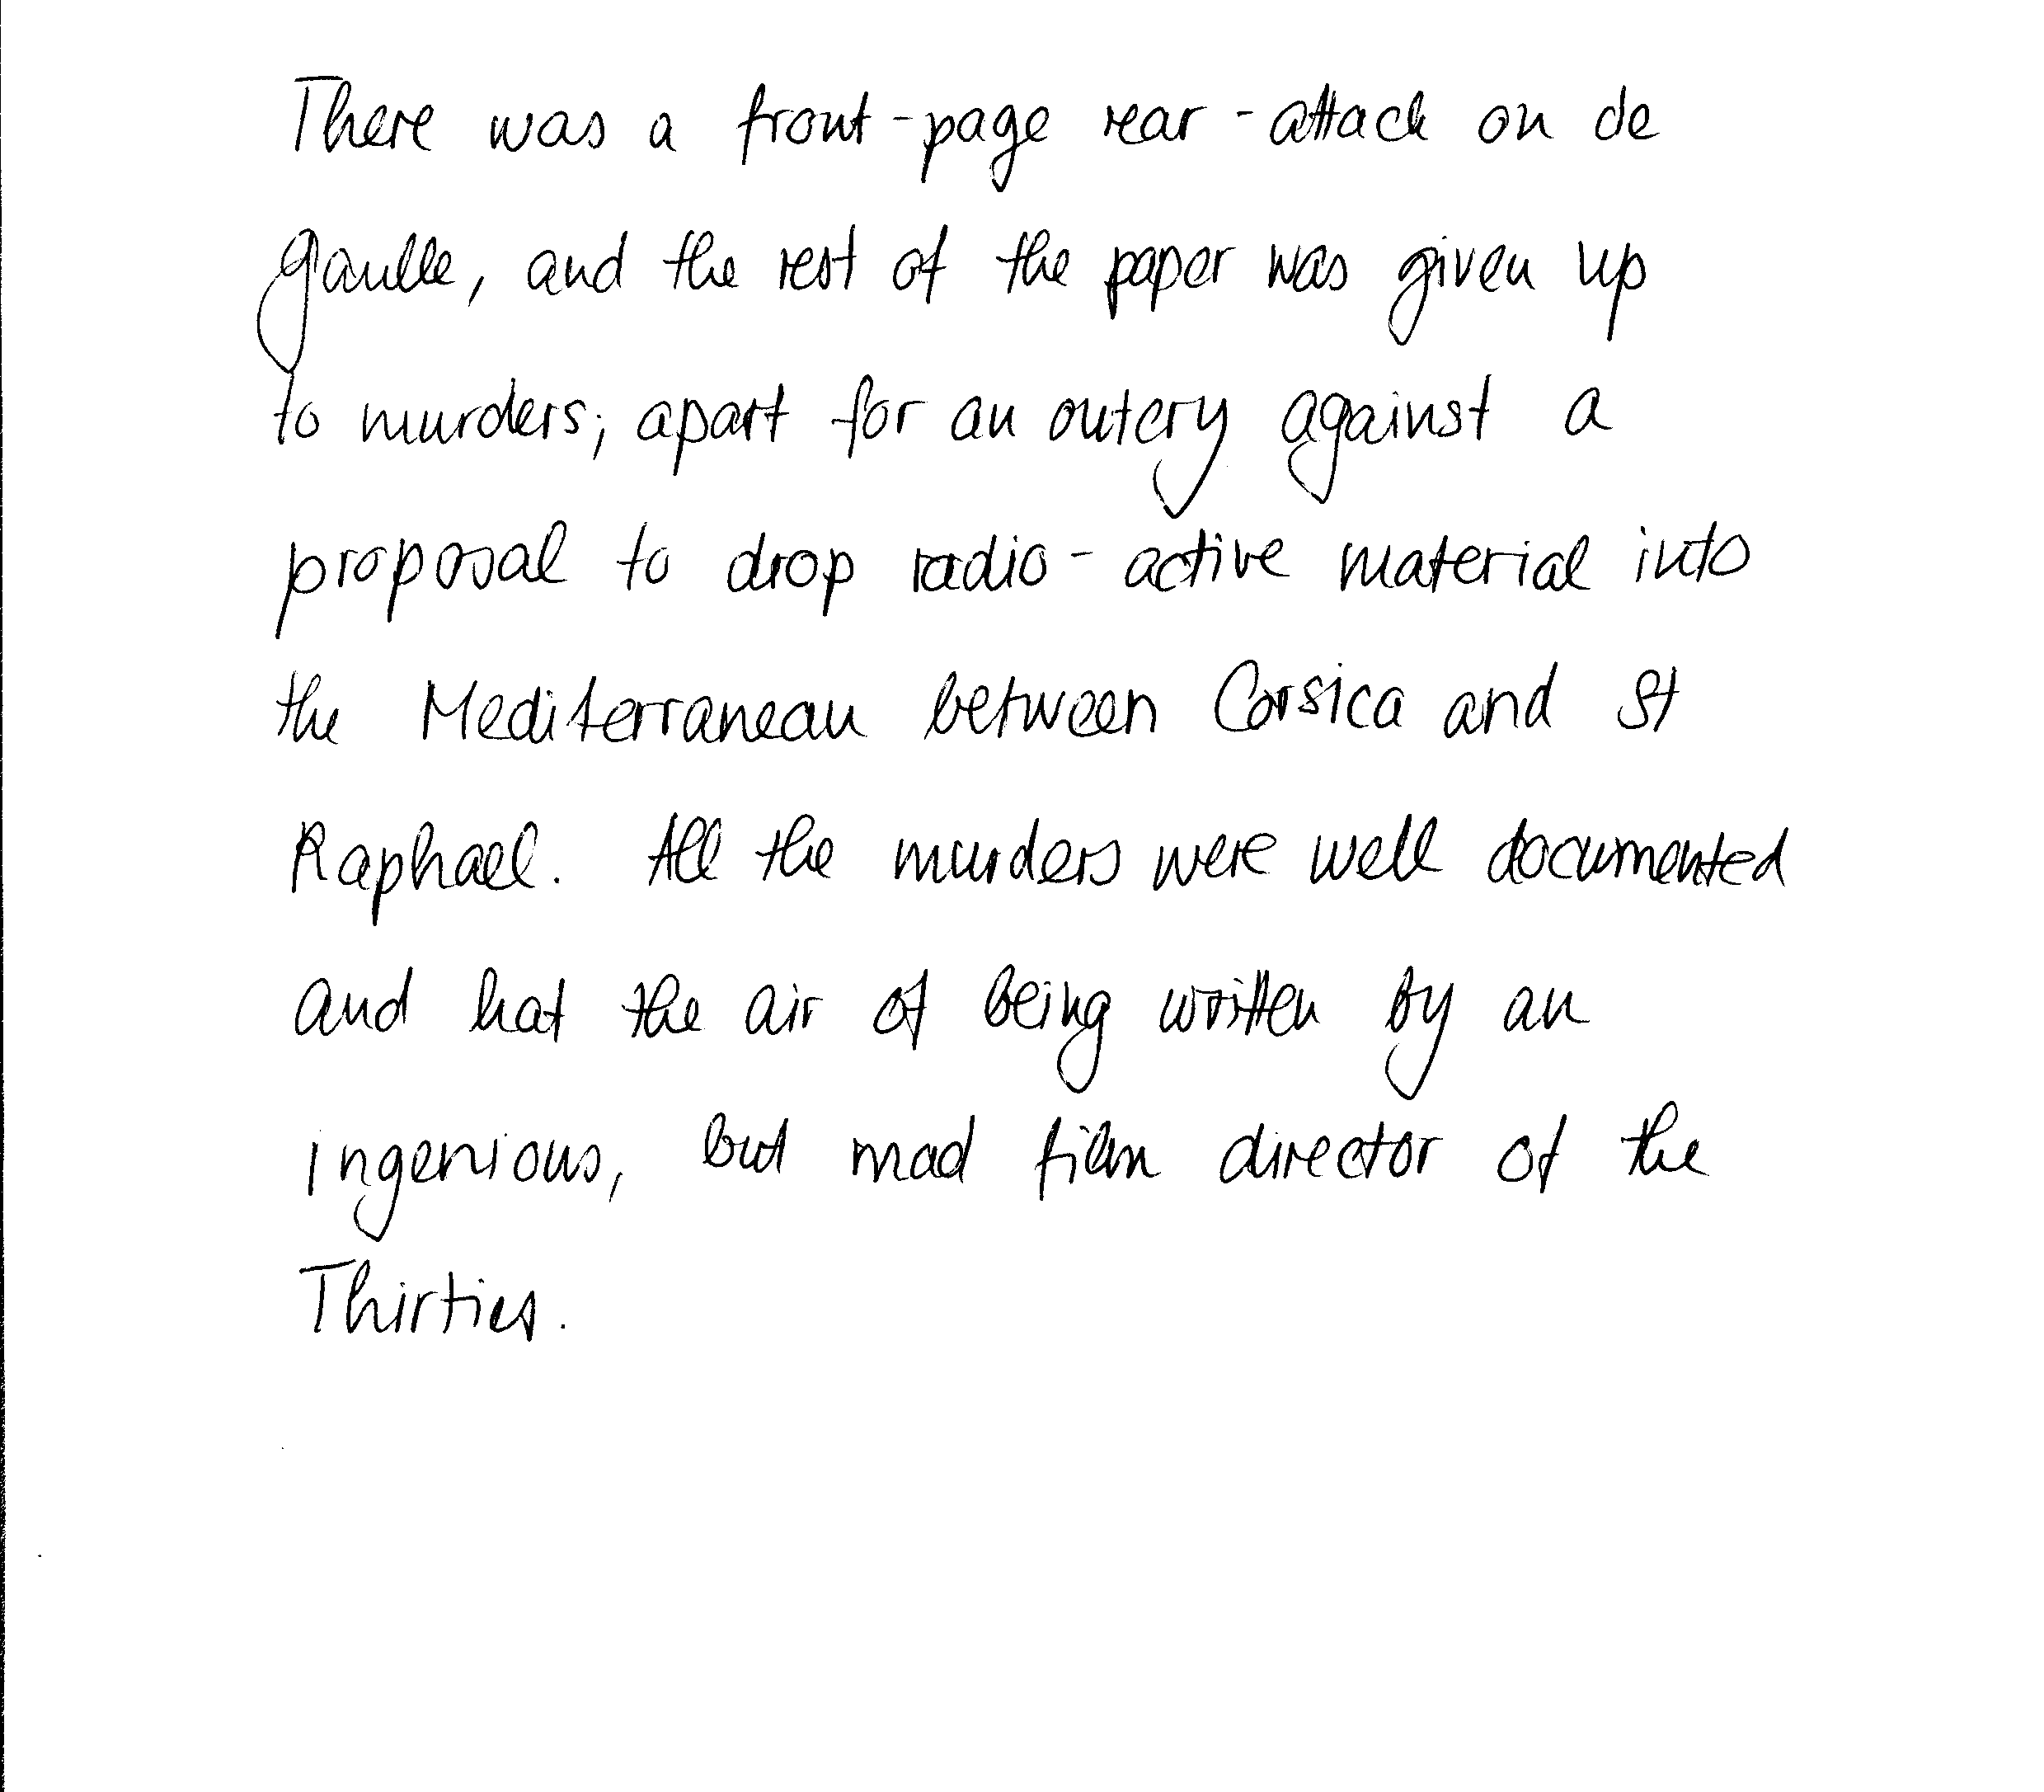 There was a front-page rear-attack on de
Gaulle, and the rest of the paper was given up
to murders; apart for an outcry against a
proposal to drop radio-active material into
the Mediterranean between Corsica and St
Raphael. All the murders were well documented
and hat the air of being written by an
ingenious, but mad film director of the
Thirties.